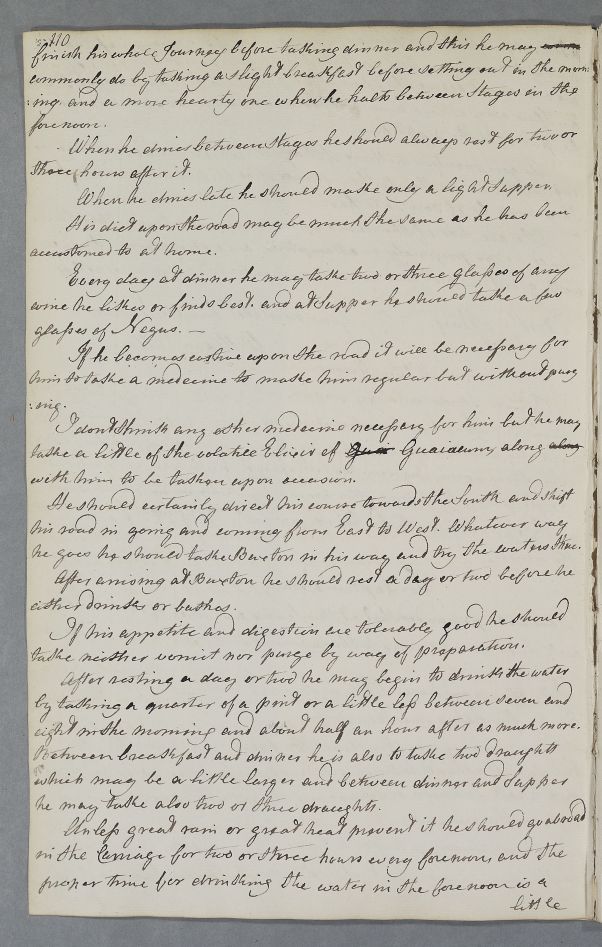 110
finish his whole Journey before taking dinner and this he may
commonly do by taking a slight breakfast before setting out in the morn
:ing and a more hearty one when he halts between Stages in the
forenoon.
When he dines between Stages he should always rest for two or
three hours after it.
When he dines late he should make only a light Supper.
His diet upon the road may be much the same as he has been
accustomed to at home.
Every day at dinner he may take two or three glasses of any
wine he likes or finds best. and at Supper he should take a few
glasses of Negus. —
If he becomes costive upon the road it will be necessary for
him to take a medecine to make him regular but without purg
:ing.
I dont think any other medecine necessary for him but he may
take a little of the volatile Elixir of Guaiacum along along
with him to be taken upon occasion.
He should certainly direct his course towards the South and shift
his road in going and coming from East to West. Whatever way
he goes he should take Buxton in his way and try the waters there.
After arriving at Buxton he should rest a day or two before he
either drinks or bathes.
If his appetite and digestion are tolerably good he should
take neither vomit nor purge by way of preparation.
After resting a day or two he may begin to drink the water
by taking a quarter of a pint or a little less between seven and
eight in the morning and about half an hour after as much more.
Between breakfast and dinner he is also to take two draughts
which may be a little larger and between dinner and Supper
he may take also two or three draughts.
Unless great rain or great heat prevent it he should go abroad
in the Carriage for two or three hours every forenoon, and the
proper time for drinking the water in the forenoon is a
little